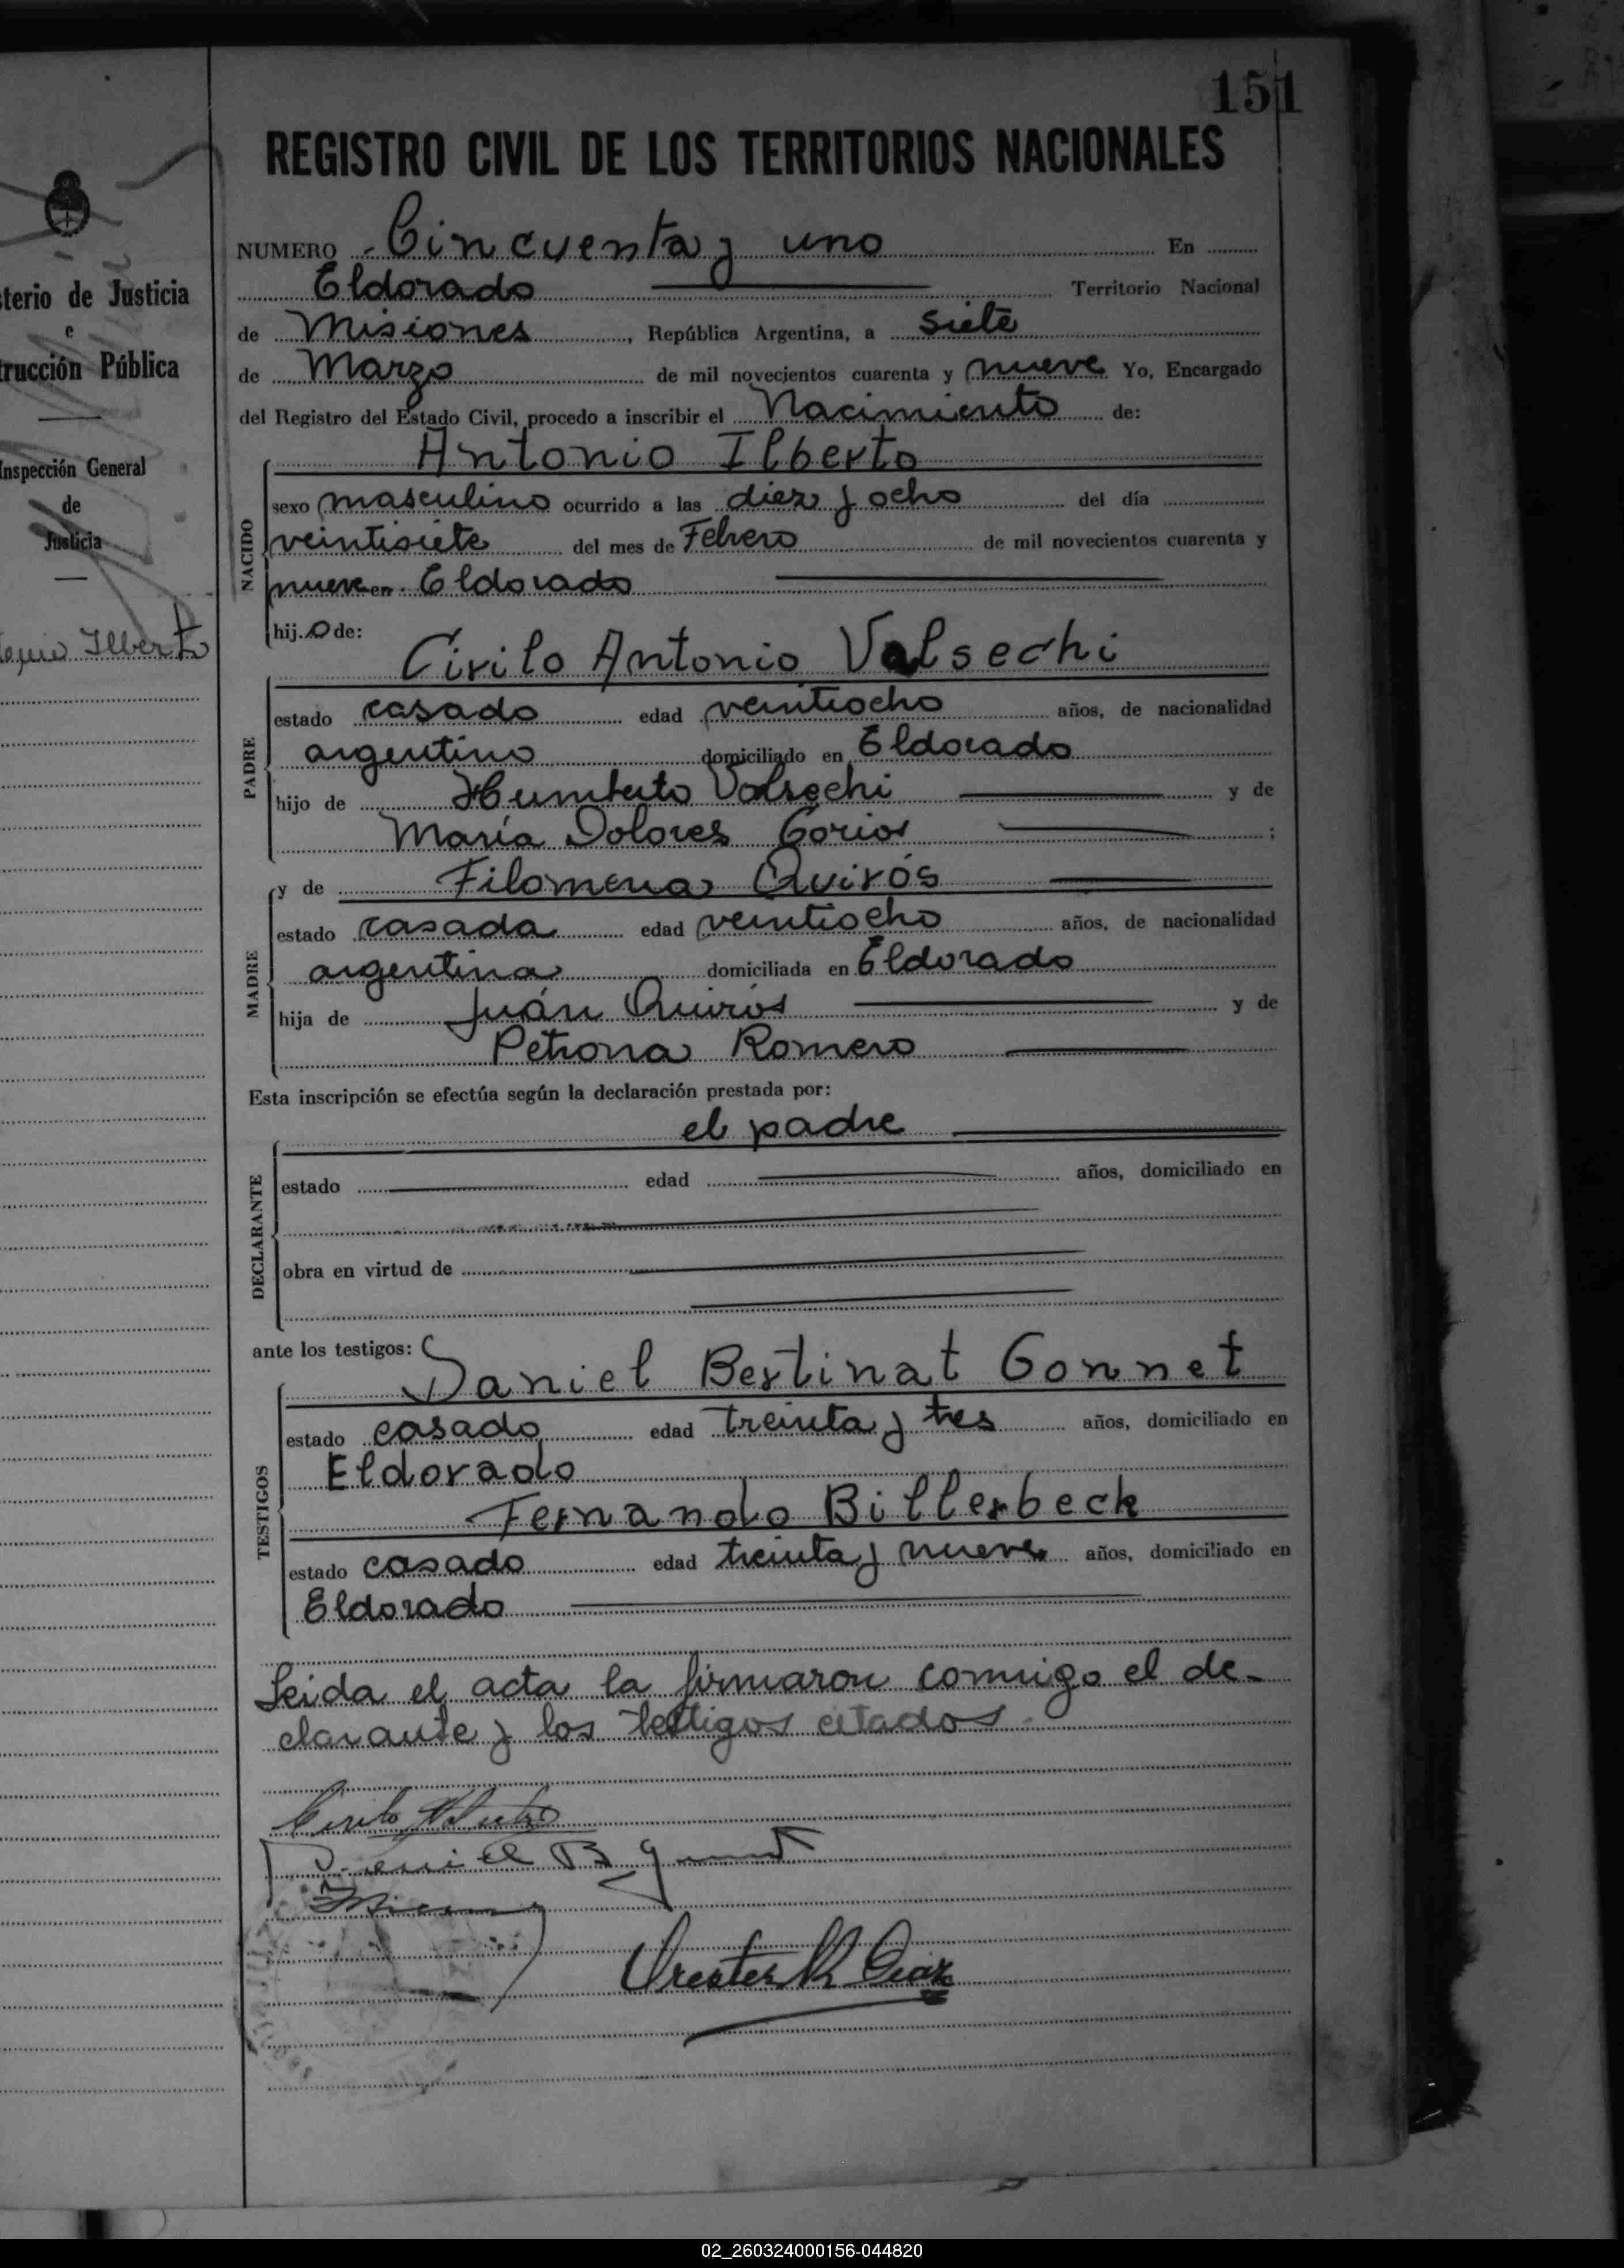 151
REGISTRO CIVIL DE LOS TERRITORIOS NACIONALES
terio de Justicia
e
trucción Pública
Inspección General
de
Justicia
Ilberto
NUMERO Cincuenta y uno En
Eldorado Territorio Nacional
de Misiones, República Argentina, a siete
de Marzo de mil novecientos cuarenta y nueve Yo, Encargado
del Registro del Estado Civil, procedo a inscribir el Nacimiento de:
Antonio Ilberto
NACIDO
sexo masculino ocurrido a las diez y ocho del día
veintisiete del mes de Febrero de mil novecientos cuarenta y
nueve en Eldorado
hijo de:
Cirilo Antonio Valsechi
PADRE
estado casado edad veintiocho años, de nacionalidad
argentino domiciliado en Eldorado
hijo de Humberto Valsechi y de
María Dolores Corios ;
y de Filomena Quirós
MADRE
estado casada edad veintiocho años, de nacionalidad
argentina domiciliada en Eldorado
hija de Juán Quirós y de
Petrona Romero
Esta inscripción se efectúa según la declaración prestada por:
el padre
DECLARANTE
estado edad años, domiciliado en
obra en virtud de
ante los testigos:
Daniel Bertinat Gonnet
TESTIGOS
estado casado edad treinta y tres años, domiciliado en
Eldorado
Fernando Billerbeck
estado casado edad treinta y nueve años, domiciliado en
Eldorado
Leida el acta la firmaron conmigo el de-
clarante y los testigos citados
Cirilo
Daniel B
02_260324000156-044820